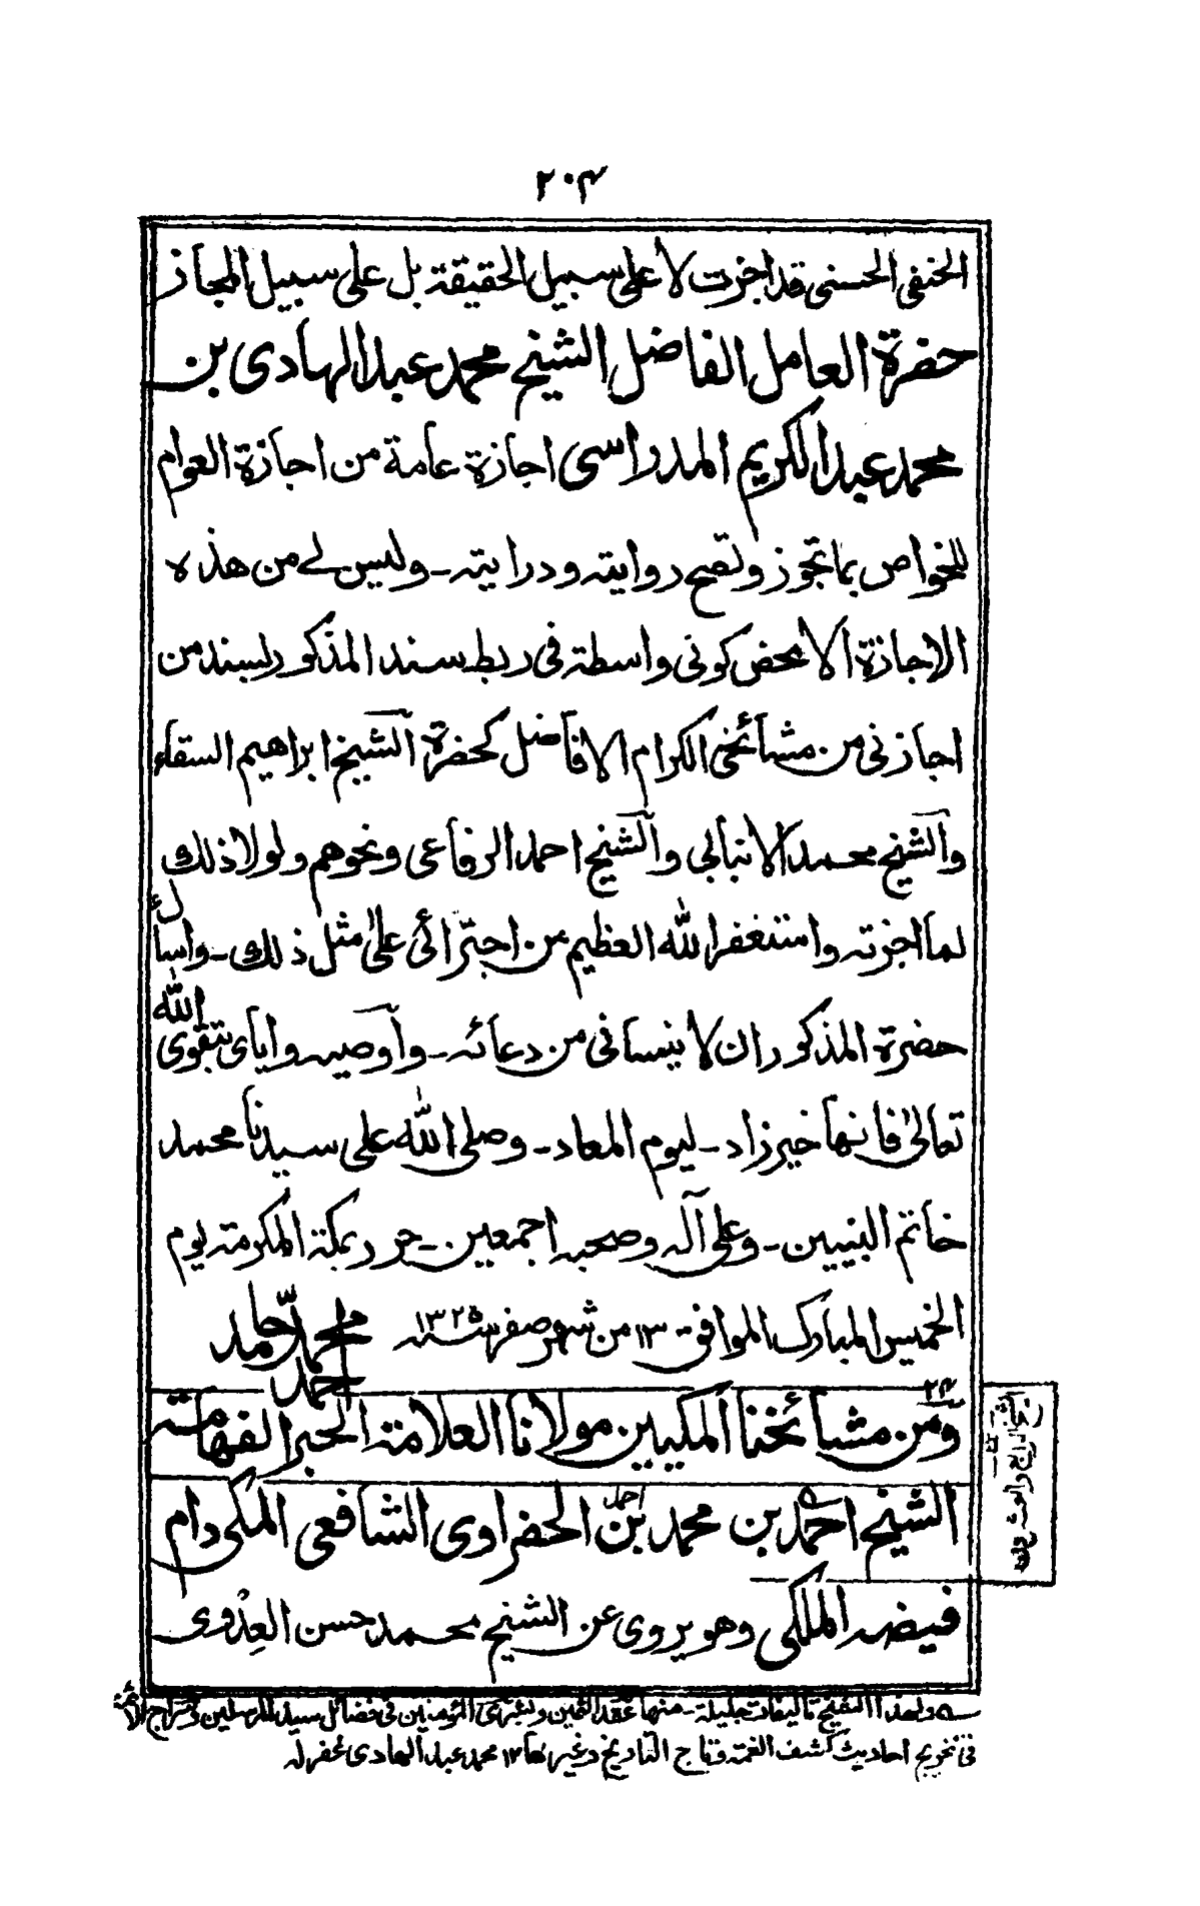 ٢٠٤
الحنفى الحسنى قد اجزت لا على سبيل الحقيقة بل على سبيل المجاز
حضرة العامل الفاضل الشيخ محمد عبد الهادى بن
محمد عبد الكريم المدراسى اجازة عامة من اجازة العوام
للخواص بما تجوز وتصح روايته ودرايته ـ وليس لے من هذه
الاجازة الا محض كونى واسطة فى ربط سند المذكور لسند من
اجازنى من مشائخى الكرام الافاضل كحضرة الشيخ ابراهيم السقاء
والشيخ محمد الانبابى والشيخ احمد الرفاعى ونحوهم ولولا ذلك
لما اجزته واستغفر الله العظيم من اجترائى على مثل ذلك ـ واسأل
حضرة المذكور ان لا ينسانى من دعائه ـ وأوصيه واياى بتقوى الله
تعالى فانها خير زاد ـ ليوم المعاد ـ وصلى الله على سيدنا محمد
خاتم النبيين ـ وعلى آله وصحبه اجمعين ـ حرر بمكة المكرمة يوم
الخميس المبارك الموافق ١٣ من شهر صفر سنه ١٣٢٥ محمد حامد احمد
٢٤
ومن مشائخنا المكيين مولانا العلامة الحبر الفهامة
الشيخ احمد بن محمد بن احمد الحضراوى الشافعى المكى دام
فيضه الملكى وهو يروى عن الشيخ محمد حسن العِدْوِى
ولهذا الشيخ تاليفات جليلة ـ منها عقد الثمين وبشرى المؤمنين فى فضائل سيد المرسلين وسراج الأمة
فى تخريج احاديث كشف الغمة وتاج التاريخ وغيرها ١٢ محمد عبد الهادى غفر له